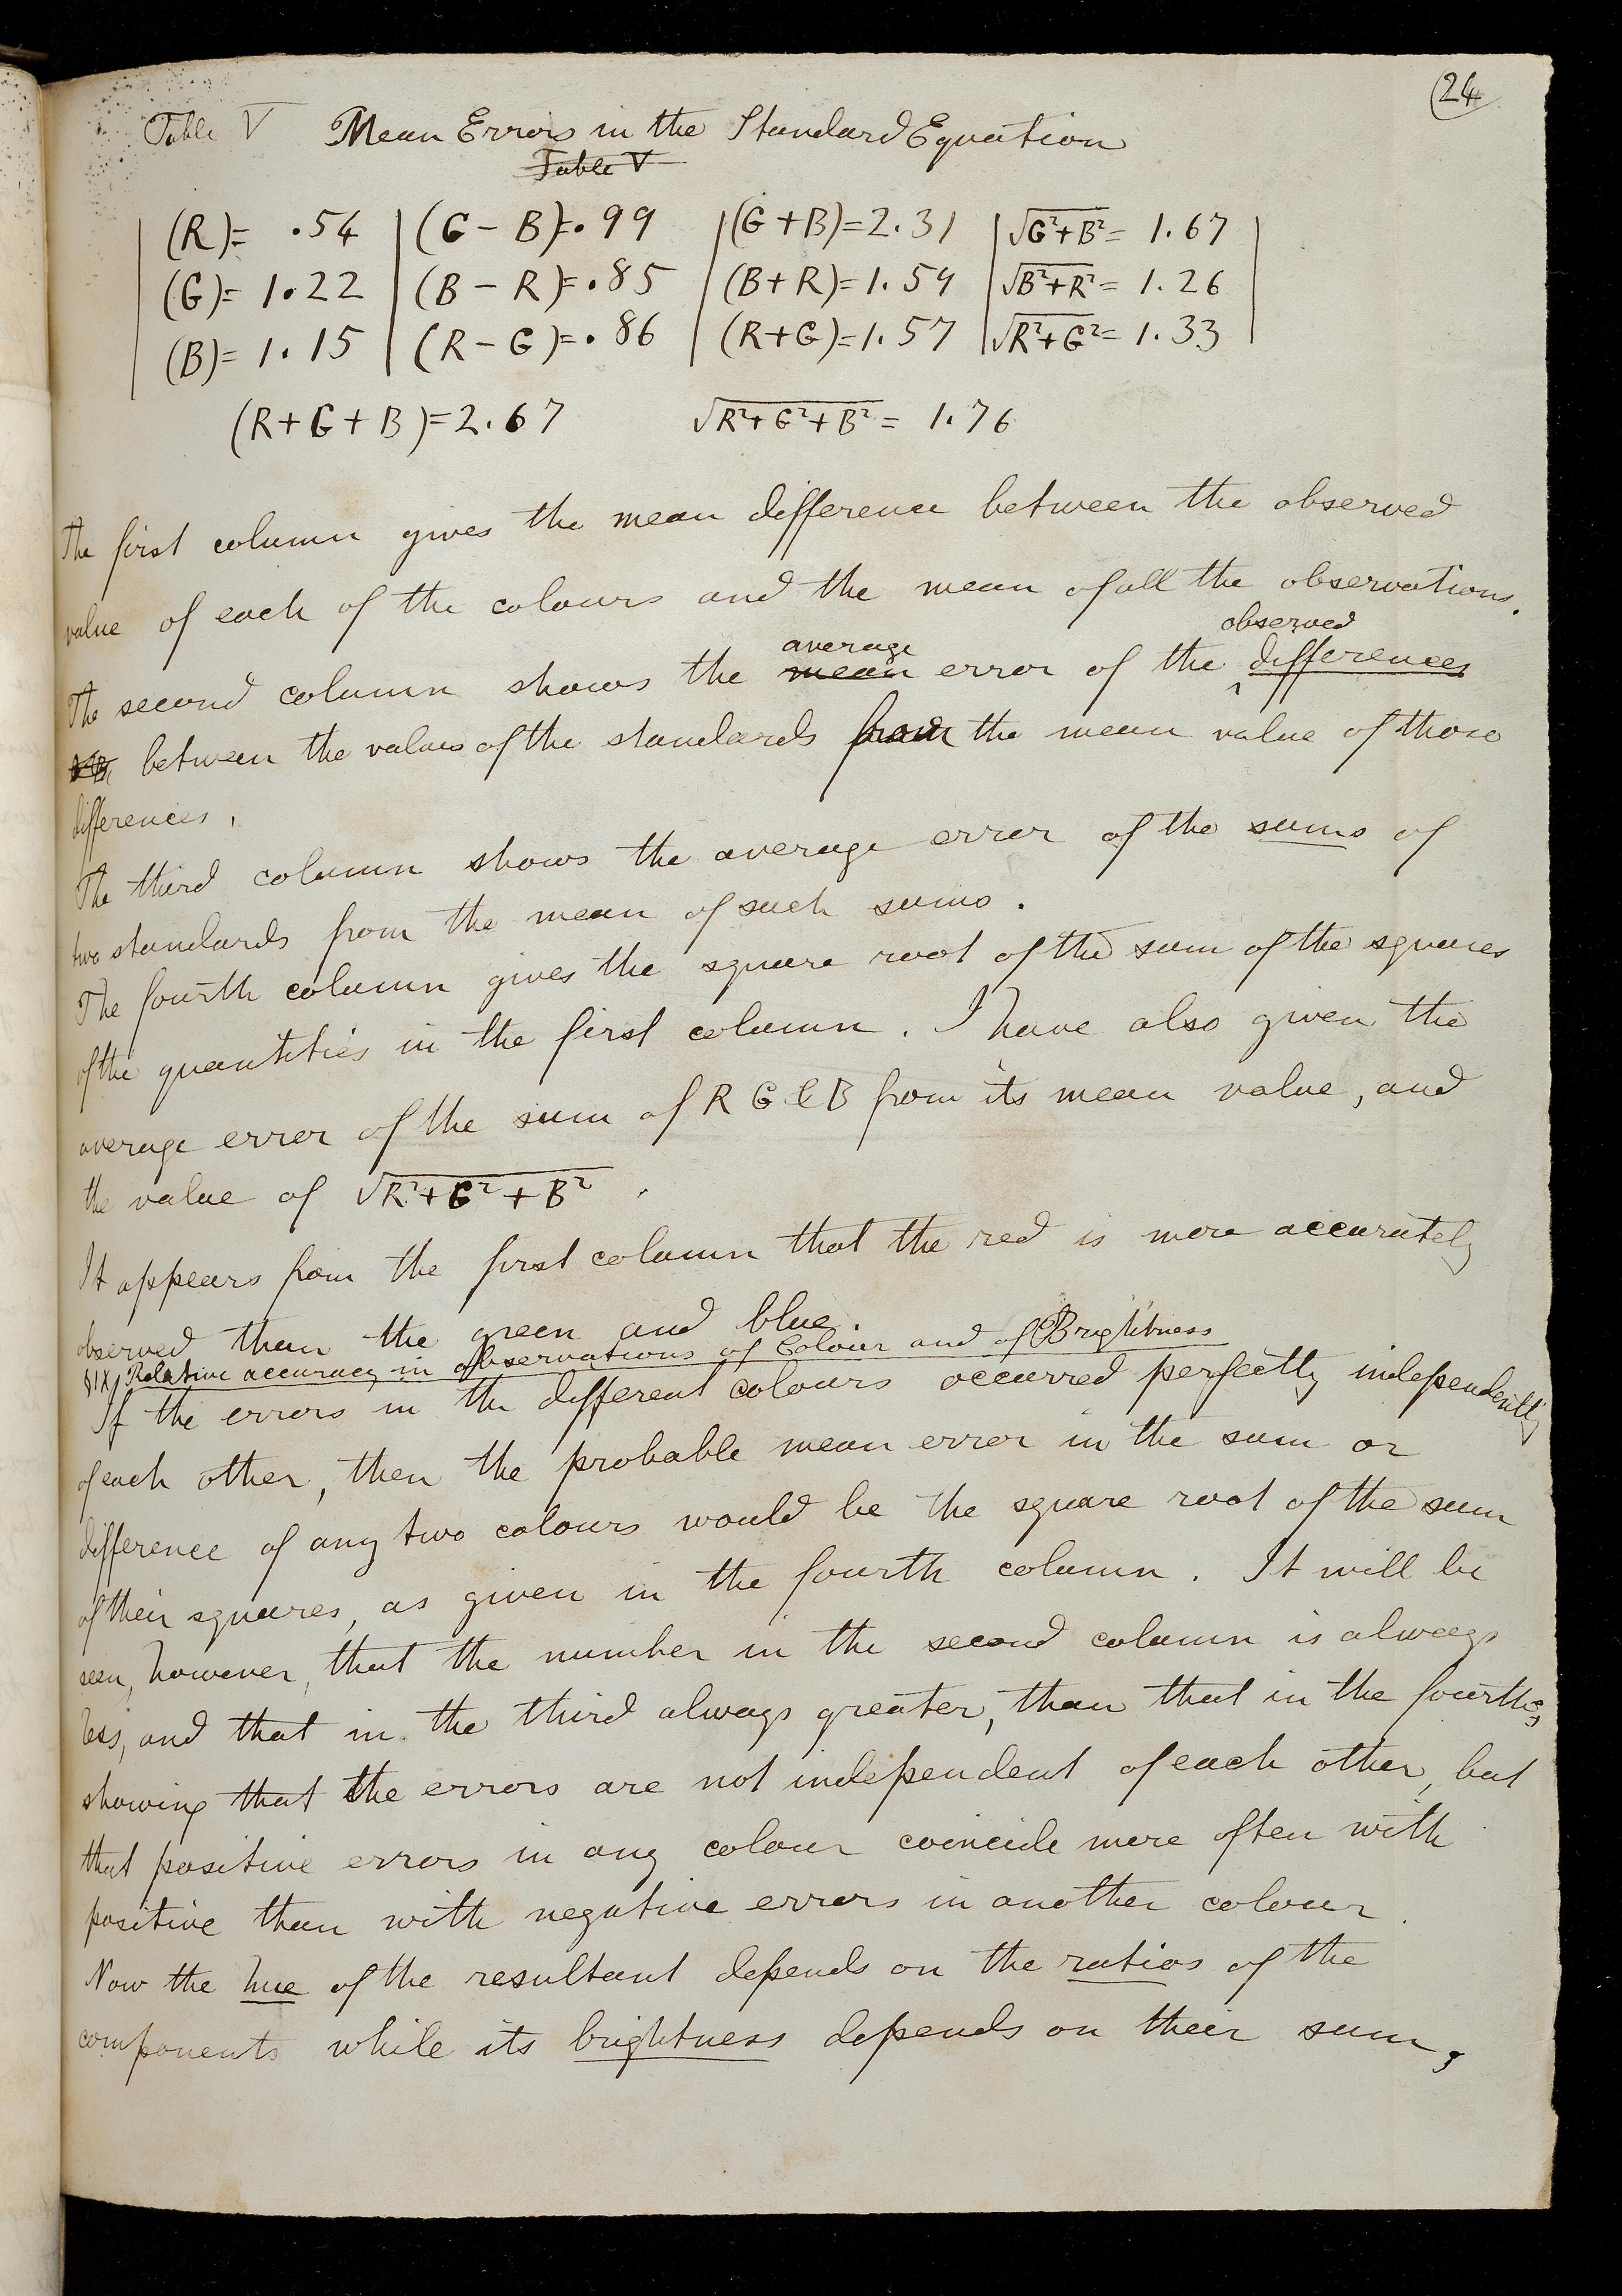 24
Table V Mean Errors in the Standard Equation
Table V
(R)= .54 | (G - B)=.99 | (G+B)=2.31 | √G²+B² = 1.67
(G)= 1.22 | (B - R)=.85 | (B+R)=1.59 | √B²+R² = 1.26
(B)= 1.15 | (R - G)=.86 | (R+G)=1.57 | √R²+G² = 1.33
(R+G+B)=2.67 √R²+G²+B² = 1.76
The first column gives the mean difference between the observed
value of each of the colours and the mean of all the observations.
average observed
The second column shows the mean error of the differences
between the values of the standards from the mean value of those
differences.
The third column shows the average error of the sums of
two standards from the mean of such sums.
The fourth column gives the square root of the sum of the squares
of the quantities in the first column. I have also given the
average error of the sum of R G & B from its mean value, and
the value of √R²+G²+B² .
It appears from the first column that the red is more accurately
observed than the green and blue.
§IX Relative accuracy in Observations of Colour and of Brightness
If the errors in the different colours occurred perfectly independently
of each other, then the probable mean error in the sum or
difference of any two colours would be the square root of the sum
of their squares, as given in the fourth column. It will be
seen, however, that the number in the second column is always
less, and that in the third always greater, than that in the fourth;
showing that the errors are not independent of each other, but
that positive errors in any colour coincide more often with
positive than with negative errors in another colour.
Now the hue of the resultant depends on the ratios of the
components while its brightness depends on their sum,